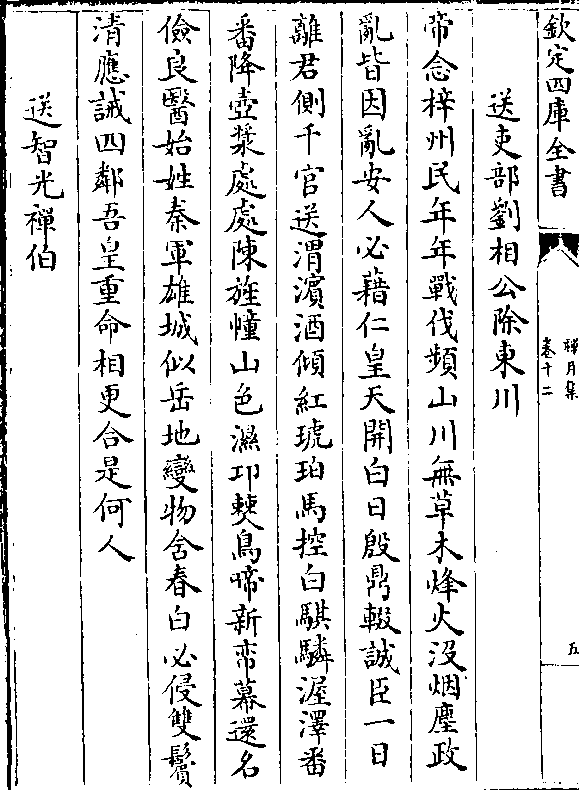 欽定四庫全書
禪月集
卷十二
五
送吏部劉相公除東川
帝念梓州民年年戰伐頻山川無草木烽火沒烟塵政
亂皆因亂安人必藉仁皇天開白日殷鼎輟誠臣一日
離君側千官送渭濱酒傾紅琥珀馬控白騏驎渥澤番
番降壺漿處處陳旌幢山色濕卭僰鳥啼新帟幕還名
儉良醫始姓秦軍雄城似岳地變物含春白必侵雙鬢
清應誡四鄰吾皇重命相更合是何人
送智光禪伯